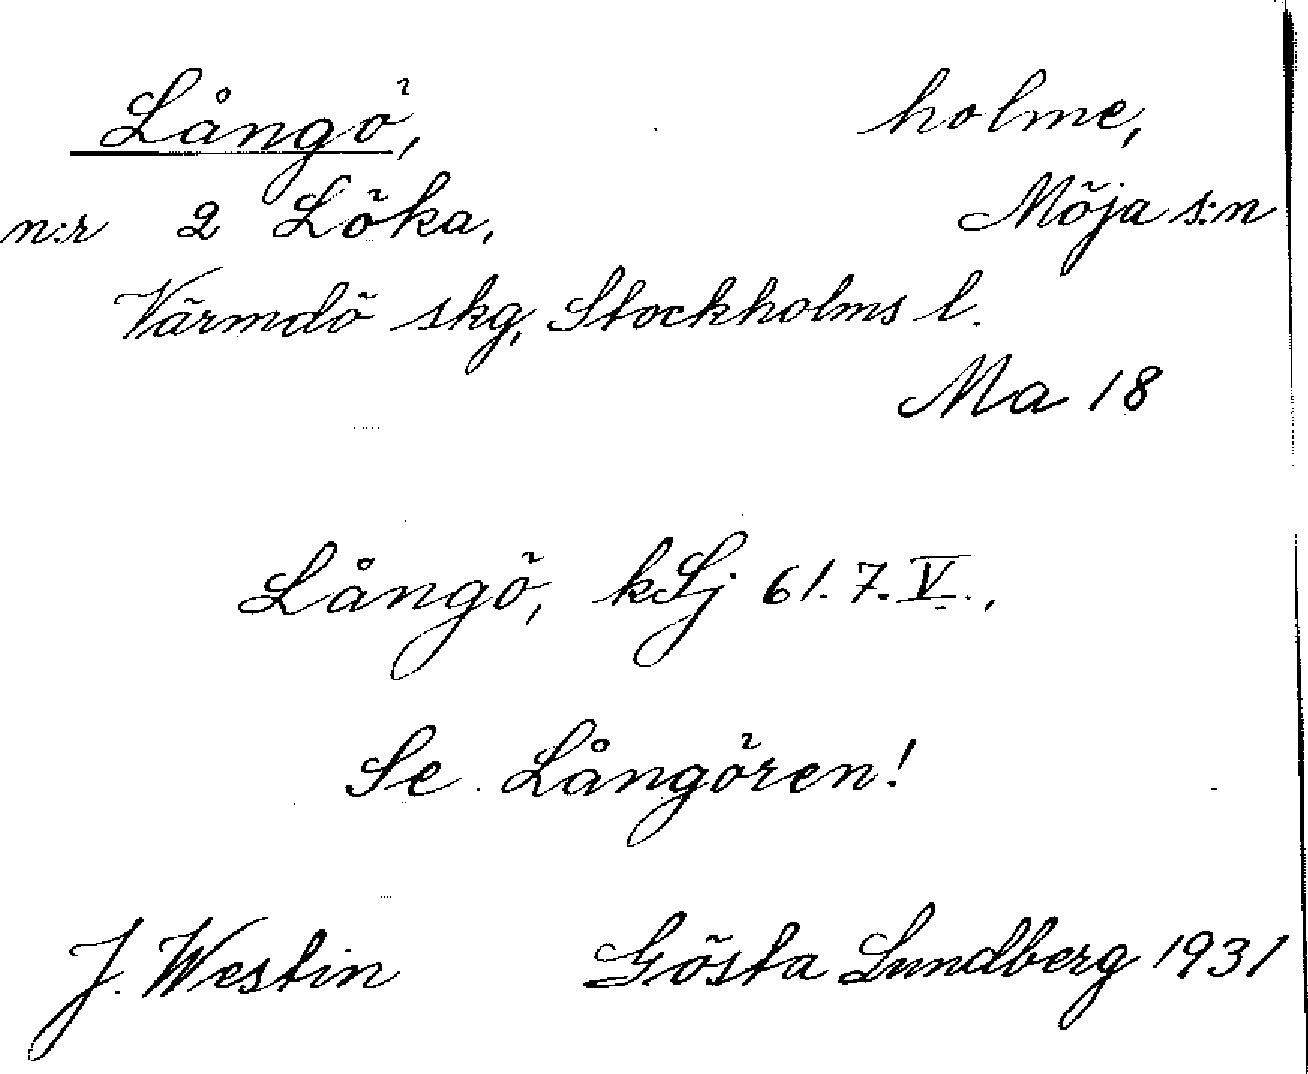 Långö, holme,
n:r 2 Löka, Möja s:n
Värmdö skg, Stockholms l.
Ma 18
Långö, kSj 61.7.V.,
Se Långören!
J. Westin Gösta Lundberg 1931